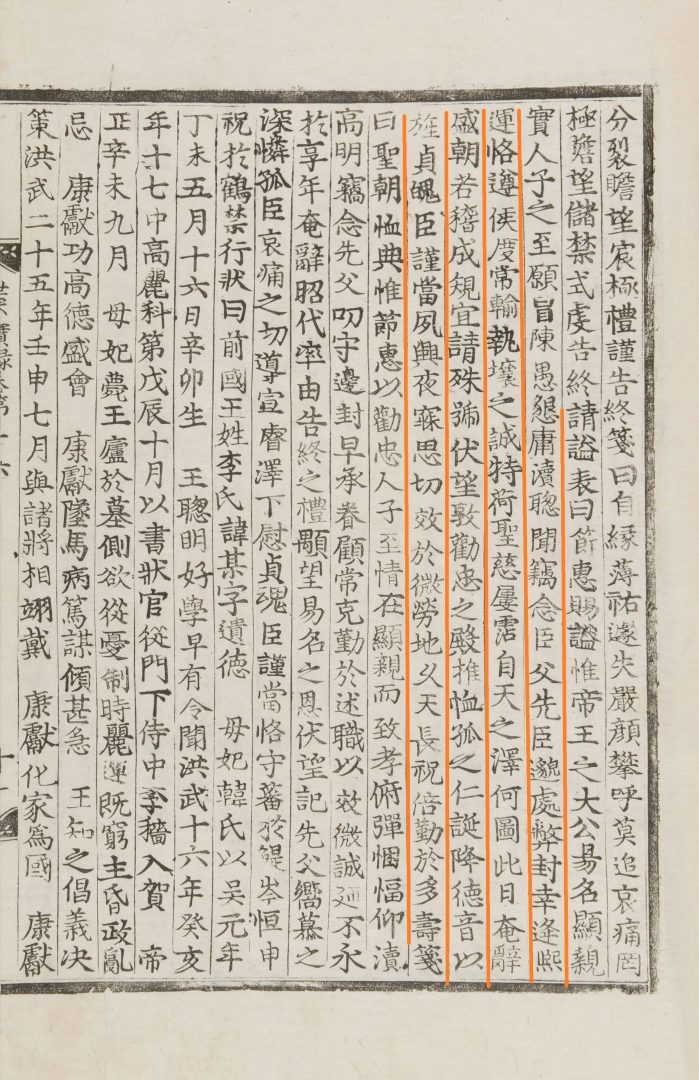 分裂瞻望宸極禮謹告終箋曰自緣薄祐遽失嚴顔攀呼莫追哀痛罔
極瞻望儲禁式虔告終請謚表曰節惠賜謚惟帝王之大公易名顯親
實人子之至願旨陳愚懇庸瀆聰聞竊念臣父先臣邈處弊封幸逢熙
運恪遵侯度常輸執壤之誠特荷聖慈屢霑自天之澤何圖此日奄辭
盛朝若稽成規宜請殊號伏望敦勸忠之敃推恤孤之仁誕降德音以
旌貞魄臣謹當夙興夜寐思切效於微勞地久天長祝倍勤於多壽箋
曰聖朝恤典惟節惠以勸忠人子至情在顯親而致孝俯彈悃愊仰瀆
高明竊念先父叨守邊封早承眷顧常克勤於述職以效微誠廼不永
於享年奄辭昭代率由告終之禮顒望易名之恩伏望記先父嚮慕之
深憐孤臣哀痛之切導宣睿澤下慰貞魂臣謹當恪守蕃於鯷岑恒申
祝於鶴禁行狀曰前國王姓李氏諱某字遺德 母妃韓氏以吳元年
丁未五月十六日辛卯生 王聰明好學早有令聞洪武十六年癸亥
年十七中高麗科第戊辰十月以書狀官從門下侍中李穡入賀 帝
正辛未九月 母妃薨王廬於墓側欲從憂制時麗運旣窮主昏政亂
忌 康獻功高德盛會 康獻墜馬病篤謀傾甚急 王知之倡義决
策洪武二十五年壬申七月與諸將相翊戴 康獻化家爲國 康獻